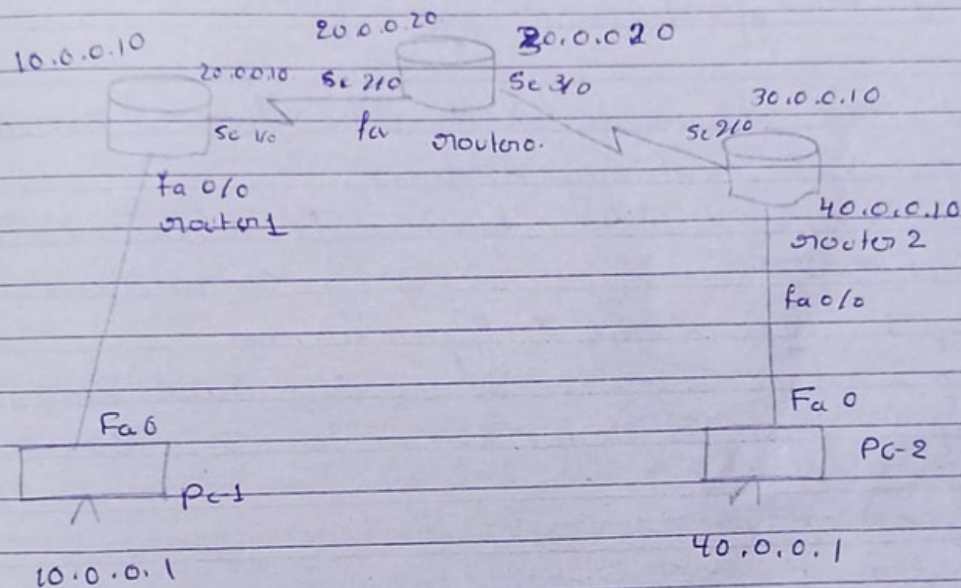 10.0.0.10
20.0.0.20
30.0.0.20
20.0.0.10
Se 2/0
Se 3/0
30.0.0.10
Se 1/0
fa
router0.
Se 2/0
Fa 0/0
router1
40.0.0.10
router 2
fa 0/0
Fa 0
Fa 0
PC-2
Pc-1
10.0.0.1
40.0.0.1